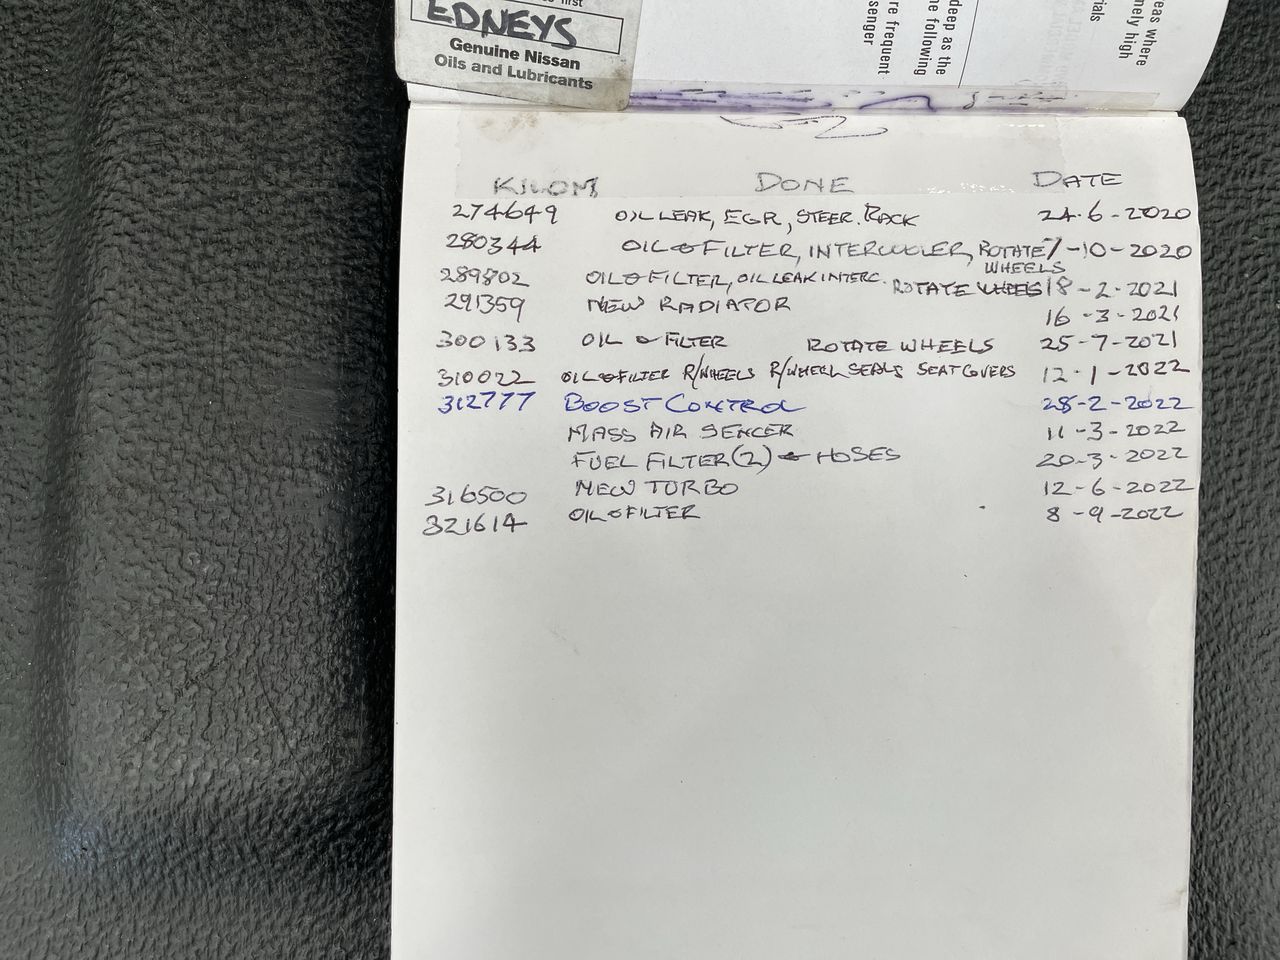 first
EDNEYS
Genuine Nissan
Oils and Lubricants
deep as the
the following
re frequent
senger
eas where
mely high
ials
KILOM DONE DATE
274649 OIL LEAK, EGR, STEER. RACK 24-6-2020
280344 OIL & FILTER, INTERCOOLER, ROTATE WHEELS 7-10-2020
289802 OIL & FILTER, OIL LEAK INTERC. ROTATE WHEELS 18-2-2021
291359 NEW RADIATOR 16-3-2021
300133 OIL & FILTER ROTATE WHEELS 25-7-2021
310022 OIL & FILTER R/WHEELS R/WHEEL SEALS SEAT COVERS 12-1-2022
312777 BOOST CONTROL 28-2-2022
MASS AIR SENCER 11-3-2022
FUEL FILTER(2) & HOSES 20-3-2022
316500 NEW TURBO 12-6-2022
321614 OIL & FILTER 8-9-2022